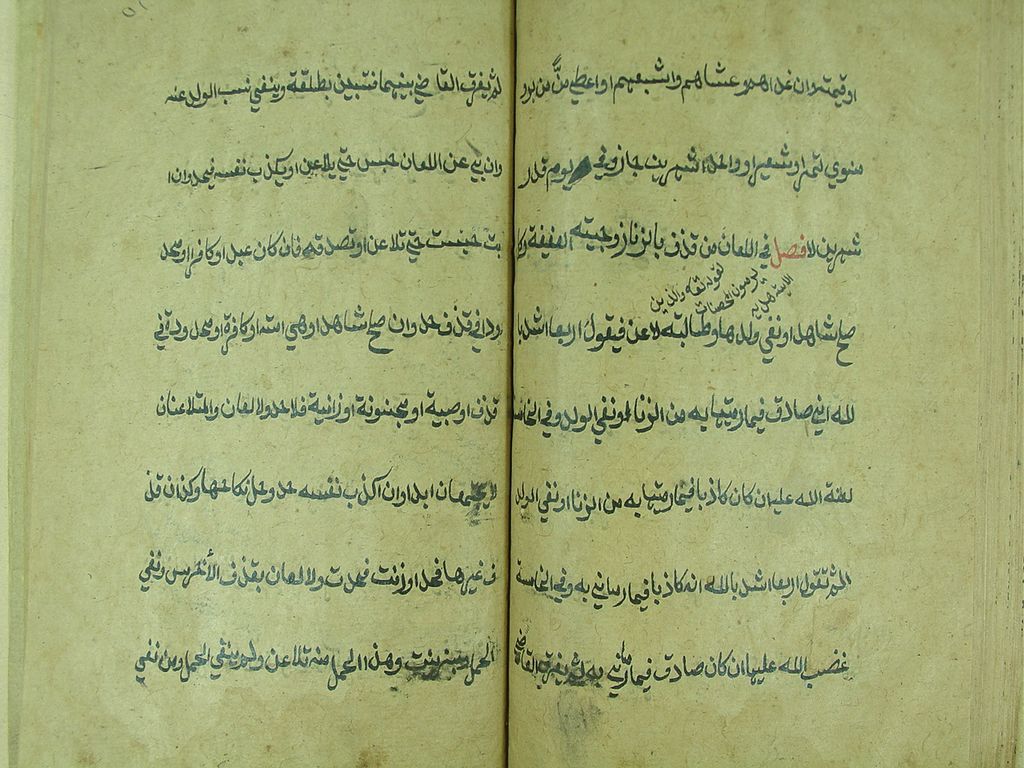 او قيمته وان غداهم وعشاهم واشبعهم او اعطي منّ من بر و
منوي تمر او شعير او واحد اشهرين جاز وفي يوم قدر
شهرين لا فصل في اللعان من قذف بالزنا زوجته العفيفة وكل
لقوله تع والذين
يرمون المحصنات
الاية هدايه
صح شاهدا او نفي ولدها وطالبته لاعن فيقول اربعا اشهد با
لله اني صادق فيما رميتها به من الزنا او نفي الولد وفي الخامسة
لعنة الله عليه ان كان كاذبا فيما رميتها به من الزنا او نفي الولد
ثم تقول اربعا اشهد بالله انه كاذبا فيما رماني به وفي الخامسة
غضب الله عليها ان كان صادق فيما رماني به ثم يفرق القاضي
ثم يفرق القاضي بينهما فتبين بطلقة وينفي نسب الولد عنه
وان بي عن اللعان حبس حتي يلاعن او يكذب نفسه فيحد وان ا
بت حبست حتي تلاعن او تصدقه فان كان عبدا او كافرا او محد
ودا في قذف حد وان صح شاهدا وهي امة او كافرة او محدودة في
قذف او صبية او مجنونة او زانية فلا حد ولا لعان والمتلاعنان
لا يجتمعان ابدا وان اكذب نفسه حد وحل نكاحها وكذا ان قذ
ف غيرها فحد او زنت فحدت ولا لعان بقذف الأخرس ونفي
الحمل وبزنيت وهذا الحمل منه تلاعن ولم ينتفي الحمل ومن نفي